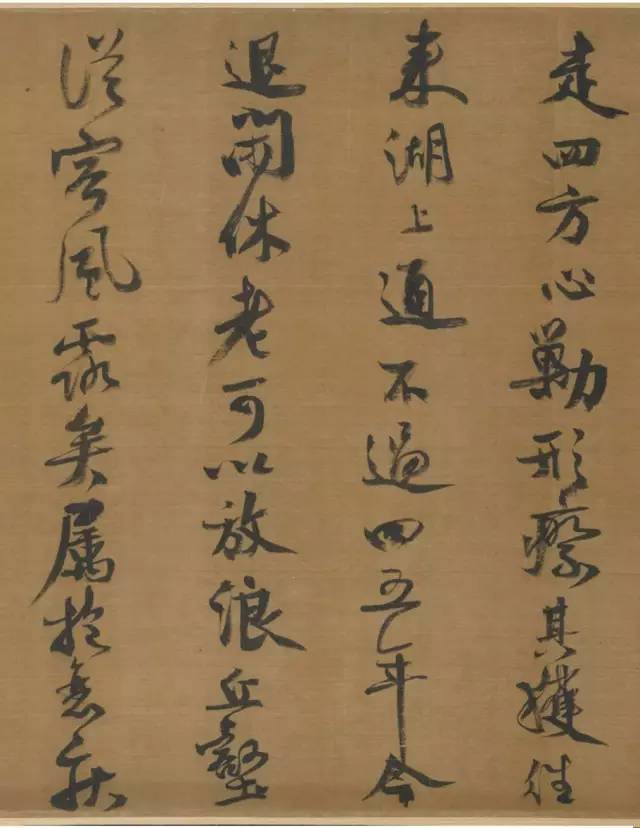 走四方心勤形瘵其獲往
來湖上通不過四五年今
退閑休老可以放浪丘壑
從容風露矣屬抱衰疾